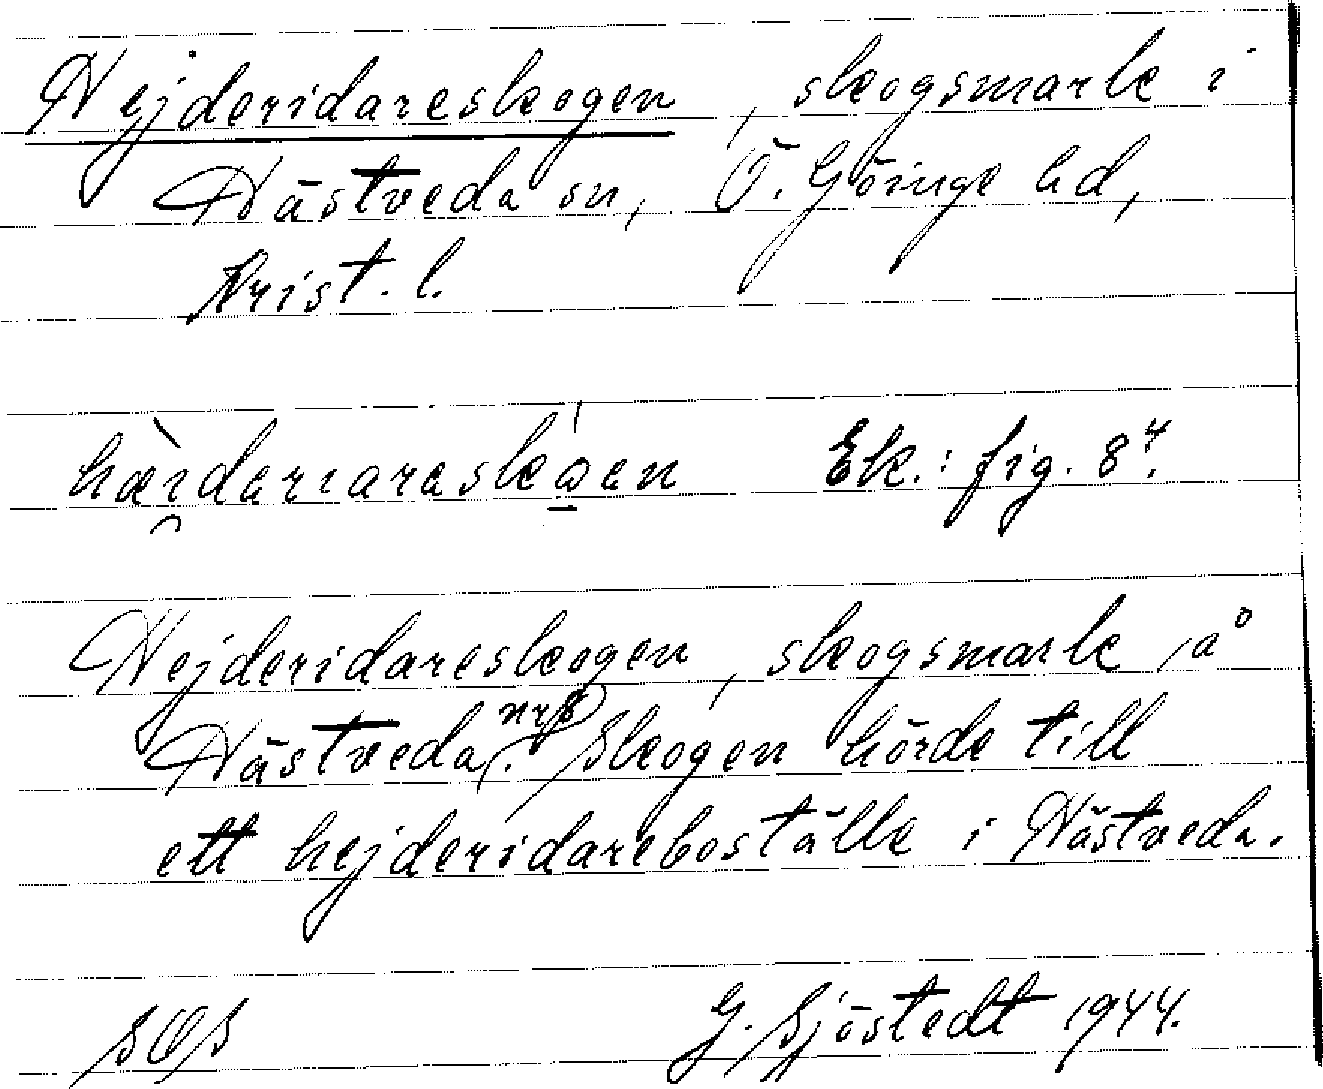 Hejderidareskogen, skogsmark i
Hästveda sn, Ö. Göinge hd,
Krist. l.
hæ̀i̯dariaraskóen Ek.: fig. 8⁴.
Hejderidareskogen, skogsmark, å
Hästveda nr 8. Skogen hörde till
ett hejderidareboställe i Hästveda.
SOS G. Sjöstedt 1944.